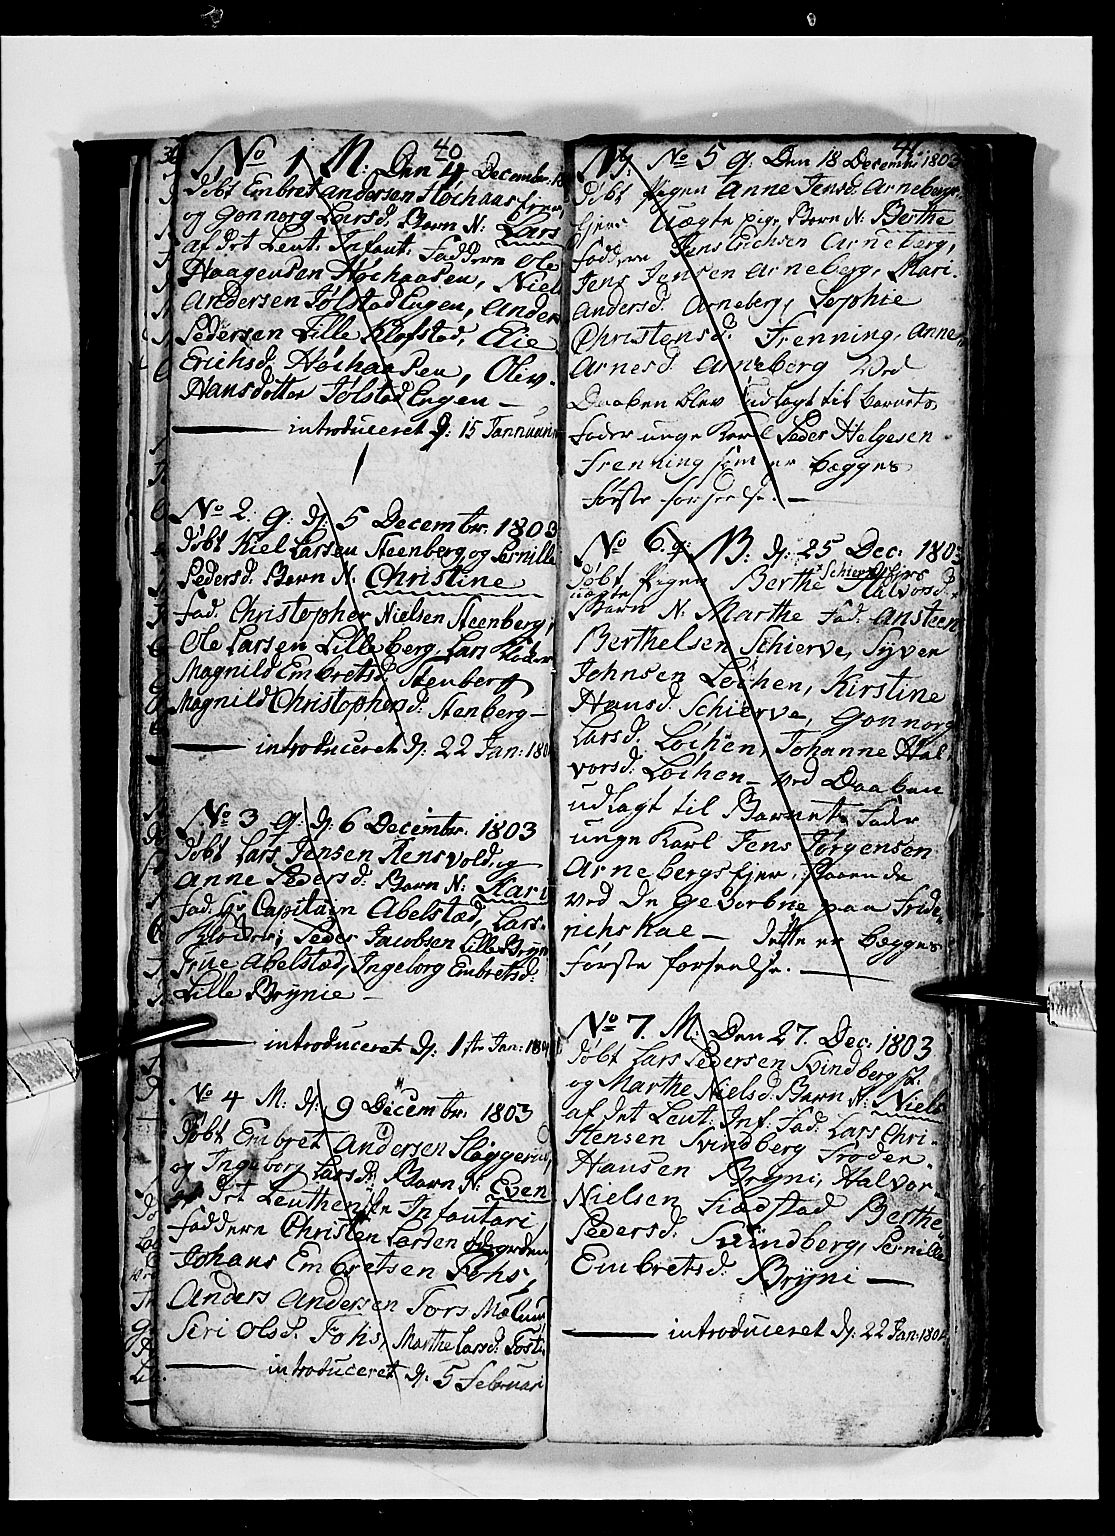 40
No 1 M: Den 4 Decembr. 18
døbt Embret Andersen Høchaas
og Gonnorg Larsd. Barn N: Lars
af det Leut: Infant: Faddern Ole
Haagensen Høchaasen, Niels
Andersen Jølstad Engen, Anders
Pedersen Lille Klofstad, Eie
Erichsd. Høchaasen, Oliv.
Hansdotter Jølstad Engen —
introduceret d: 15 Jannuari
No 2. q: d: 5 Decembr. 1803
døbt Kiel Larsen Steenberg og Pernille
Pedersd. Barn N. Christine
Fad. Christopher Nielsen Steenberg,
Ole Larsen Lilleberg, Lars Kloder
Magnild Embretsd. Stenberg
Magnild Christophersd. Stenberg —
introduceret d: 22 Jan: 180
No 3 q: d: 6 Decembr. 1803
døbt Lars Jensen Stensvold, og
Anne Pedersd. Barn N: Kari
Fad. Hr Capitain Abelstæd, Lars
Kloder, Peder Jacobsen Lille Bryn
Frue Abelstæd, Ingeborg Embretsd:
Lille Brynie —
introduceret d: 1ste Jan: 180
No 4 M: d: 9 Decembr. 1803
døbt Embret Andersen Sloggerud,
og Ingeborg Larsd. Barn N: Even
det Leuthen Infantari,
Faddern Christen Larsen
Johans Embretsen Fohs,
Anders Andersen Tors Mælum
Siri Olsd. Fohs, Marthe Larsd.
introduceret d: 5 Februari
41
No 5 q: Den 18 Decembr 1803
døbt Pigen Anne Jensd. Arnebergs
Ejer Uægte pige Barn N: Berthe
Faddern Jens Erichsen Arneberg,
Jens Jensen Arneberg, Mari
Andersd. Arneberg, Sophie
Christensd. Frenning, Anne
Arnesd. Arneberg Ved
Daaben blev Udlagt til Barnets
Fader unge Karl Peder Helgesen
Frenning som er begges
første forseelse. —
No 6. q: B. d: 25 Dec: 1803
Schierve Ejer
døbt Pigen Berthe Halvorsd.
uægte
Barn N. Marthe Fad: Ansteen
Berthelsen Schierve, Syver
Johnsen Løchen, Kirstine
Hansd. Schierve, Gonnorg
Larsd. Løchen, Johanne Hal
vorsd: Løchen — ved Daaben
udlagt til Barnets Fader
unge Karl Jens Jørgensen
Arnebergs Ejer, staaende
ved De gevorbne paa Fride
richs Hae — dette er begges
første forseelse. —
No 7. M. Den 27. Dec: 1803
døbt Lars Pedersen Svindberg
og Marthe Nielsd. Barn N: Niels
af det Leut: Inf. Fad: Lars Chri-
stensen Svindberg Froder
Hansen Bryni, Halvor
Nielsen Berthe
Pedersd. Svindberg, Pernille
Embretsd. Bryni —
introduceret d: 22 Jan: 1804